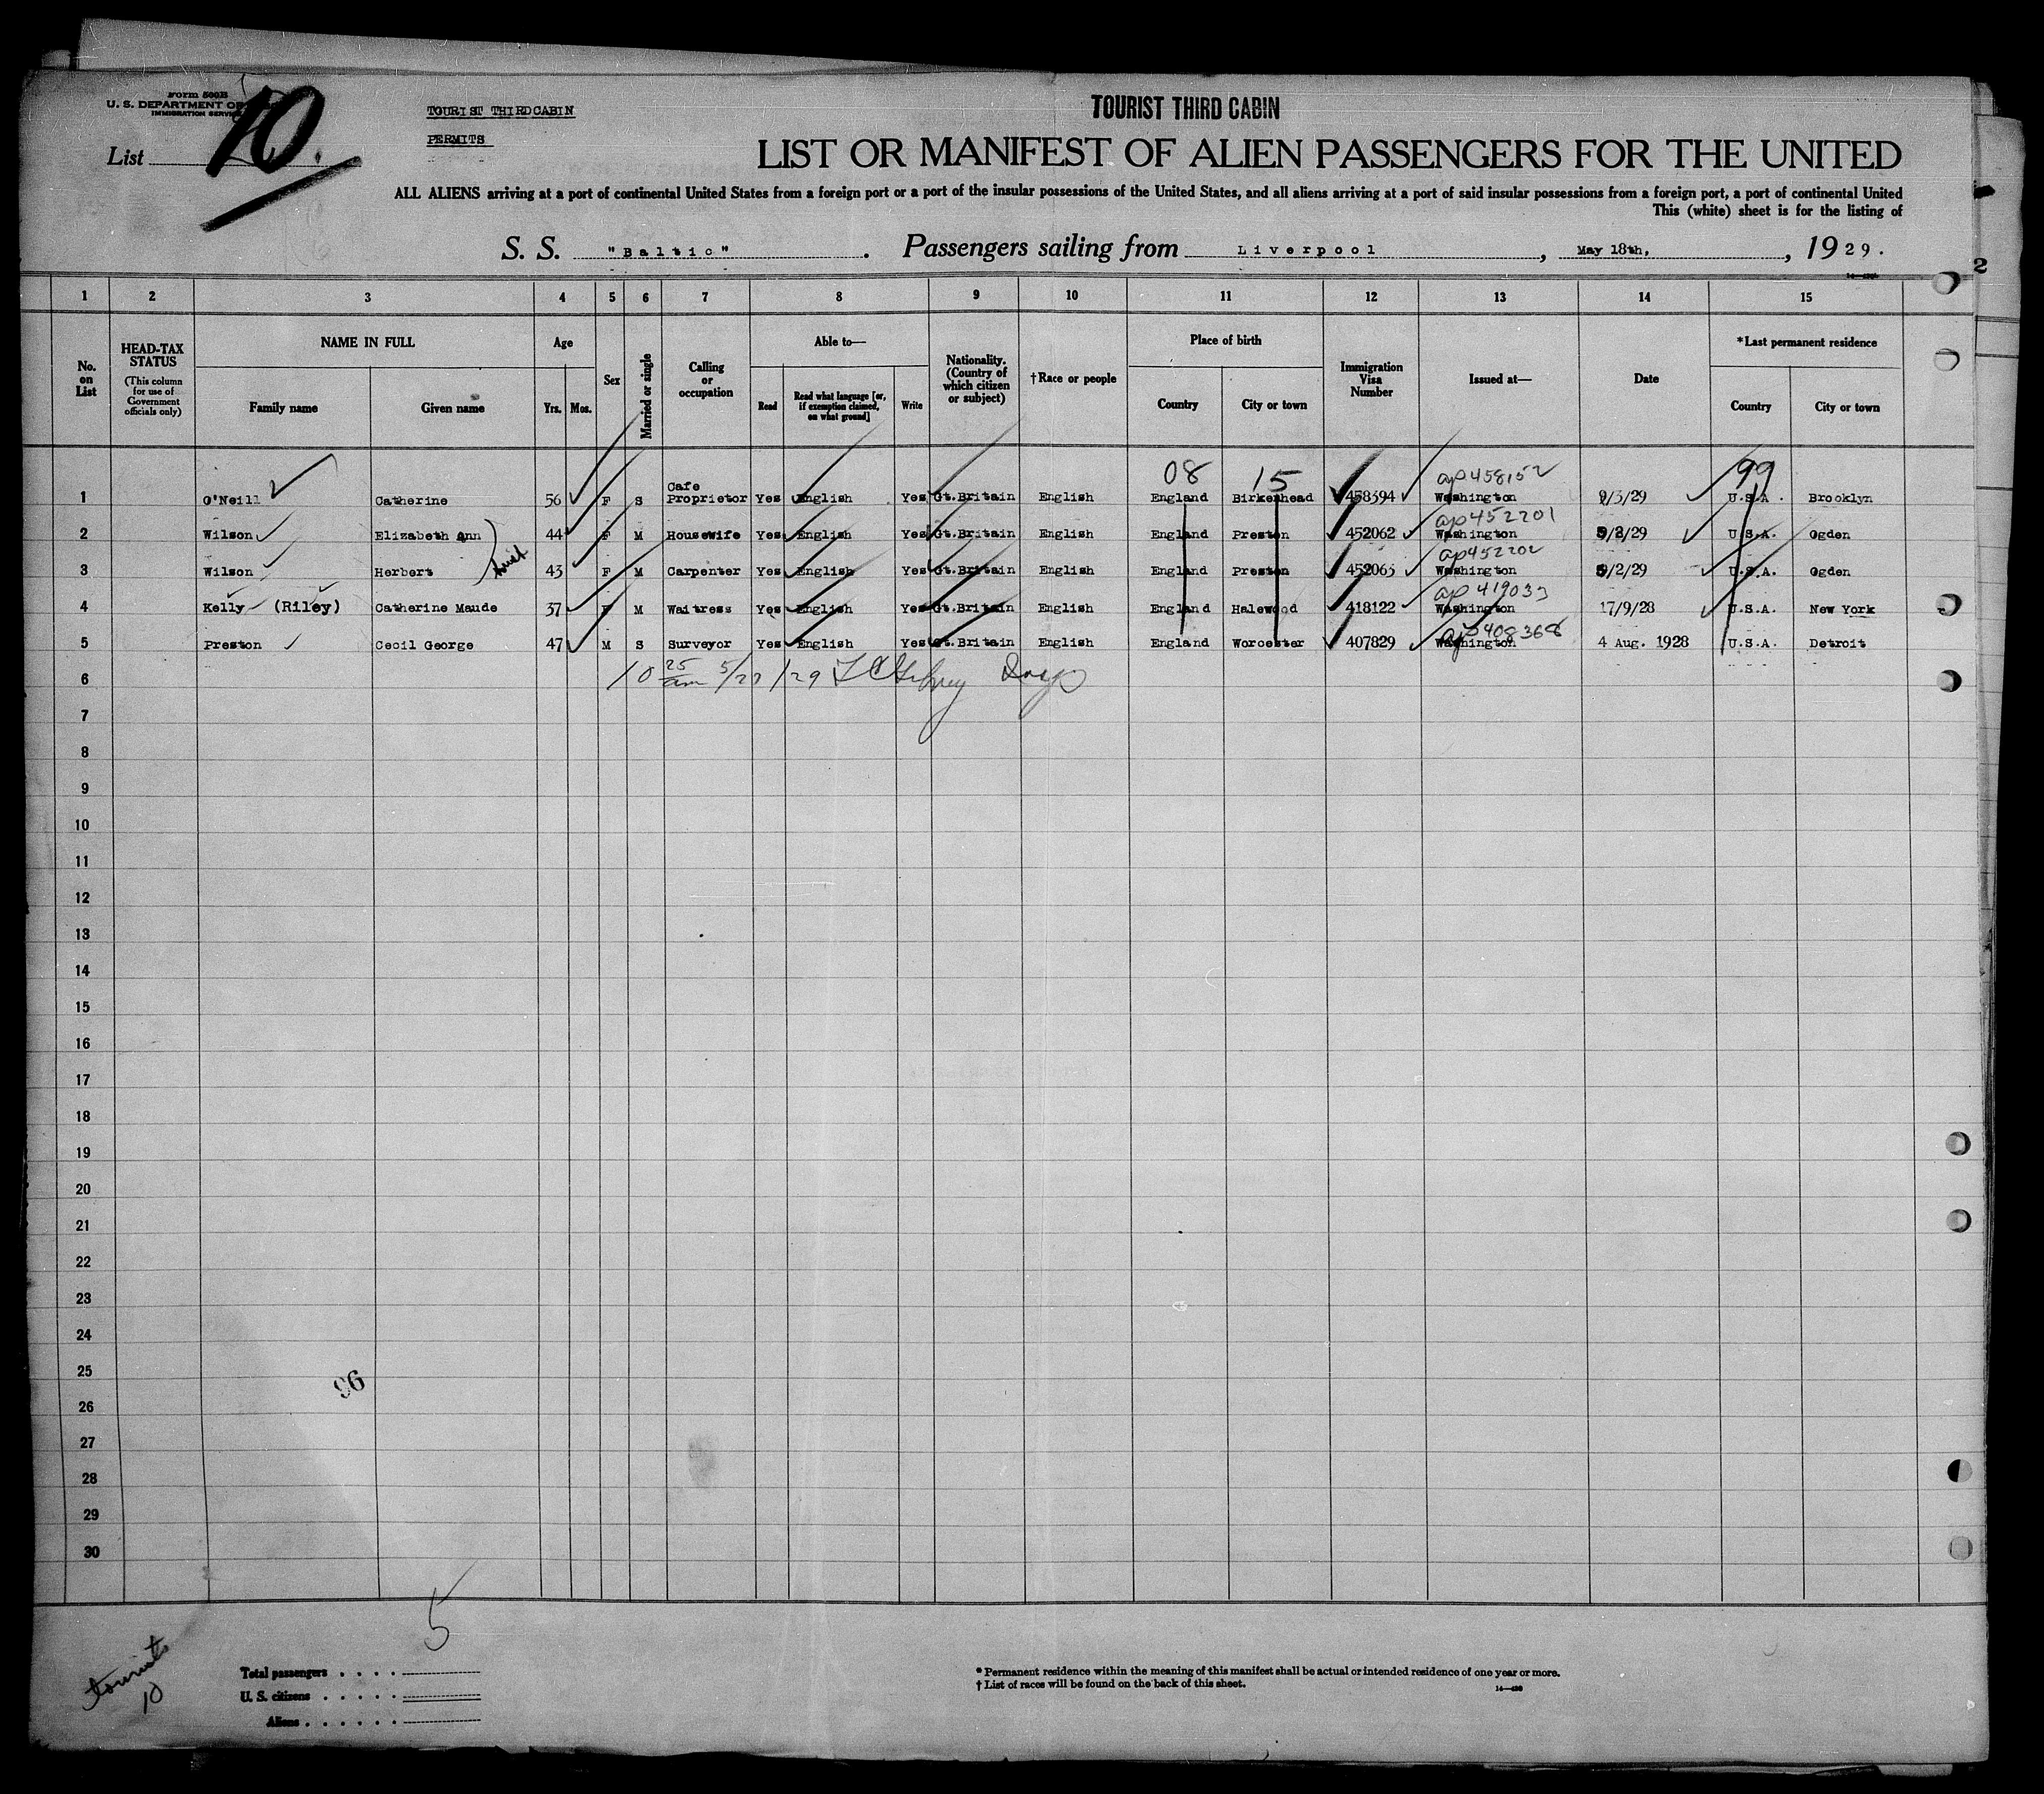 Form 500B
U. S. DEPARTMENT OF
IMMIGRATION SERVICE
List 10.
TOURIST THIRD CABIN
PERMITS
TOURIST THIRD CABIN
LIST OR MANIFEST OF ALIEN PASSENGERS FOR THE UNITED
ALL ALIENS arriving at a port of continental United States from a foreign port or a port of the insular possessions of the United States, and all aliens arriving at a port of said insular possessions from a foreign port, a port of continental United
This (white) sheet is for the listing of
S. S. "Baltic". Passengers sailing from Liverpool, May 18th, 1929.
2
1 2 3 4 5 6 7 8 9 10 11 12 13 14 15
No. on List
HEAD-TAX STATUS (This column for use of Government officials only)
NAME IN FULL Family name Given name
Age Yrs. Mos.
Sex
Married or single
Calling or occupation
Able to— Read Read what language [or, if exemption claimed, on what ground] Write
Nationality. (Country of which citizen or subject)
†Race or people
Place of birth Country City or town
Immigration Visa Number
Issued at—
Date
*Last permanent residence Country City or town
08 15 ap458152 99
1 O'Neill Catherine 56 F S Cafe Proprietor Yes English Yes Gt.Britain English England Birkenhead 458394 Washington 9/3/29 U.S.A. Brooklyn
ap452201
2 Wilson Elizabeth Ann 44 F M Housewife Yes English Yes Gt.Britain English England Preston 452062 Washington 9/2/29 U.S.A. Ogden
ap452202
3 Wilson Herbert 43 F M Carpenter Yes English Yes Gt.Britain English England Preston 452063 Washington 9/2/29 U.S.A. Ogden
ap419033
4 Kelly (Riley) Catherine Maude 37 F M Waitress Yes English Yes Gt.Britain English England Halewood 418122 Washington 17/9/28 U.S.A. New York
ap408368
5 Preston Cecil George 47 M S Surveyor Yes English Yes Gt.Britain English England Worcester 407829 Washington 4 Aug. 1928 U.S.A. Detroit
6 10 25 am 5/27/29
7
8
9
10
11
12
13
14
15
16
17
18
19
20
21
22
23
24
25
96
26
27
28
29
30
5
tourists
10
Total passengers
U. S. citizens
Aliens
* Permanent residence within the meaning of this manifest shall be actual or intended residence of one year or more.
† List of races will be found on the back of this sheet.